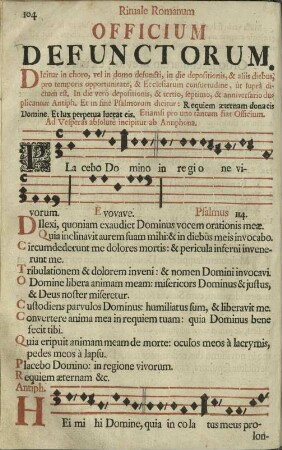 104
Rituale Romanum
OFFICIUM
DEFUNCTORUM.
DIcitur in choro, vel in domo defuncti, in die depositionis, & aliis diebus,
pro temporis opportunitate, & Ecclesiarum consuetudine, ut suprà di-
ctum est. In die verò depositionis, & tertio, septimo, & anniversario du-
plicantur Antiph. Et in fine Psalmorum dicitur: Requiem æternam dona eis
Domine. Et lux perpetua luceat eis. Etiamsi pro uno tantùm fiat Officium.
Ad Vesperas absolutè incipitur ab Antiphona.
PLa cebo Do mino in regio ne vi-
vorum. E vovave. Psalmus 114.
DIlexi, quoniam exaudiet Dominus vocem orationis meæ.
Quia inclinavit aurem suam mihi: & in diebus meis invocabo.
Circumdederunt me dolores mortis: & pericula inferni invene-
runt me.
Tribulationem & dolorem inveni: & nomen Domini invocavi.
O Domine libera animam meam: misericors Dominus & justus,
& Deus noster miseretur.
Custodiens parvulos Dominus: humiliatus sum, & liberavit me.
Convertere anima mea in requiem tuam: quia Dominus bene
fecit tibi.
Quia eripuit animam meam de morte: oculos meos à lacrymis,
pedes meos à lapsu.
Placebo Domino: in regione vivorum.
Requiem æternam &c.
Antiph.
HEi mi hi Domine, quia in cola tus meus pro-
lon-